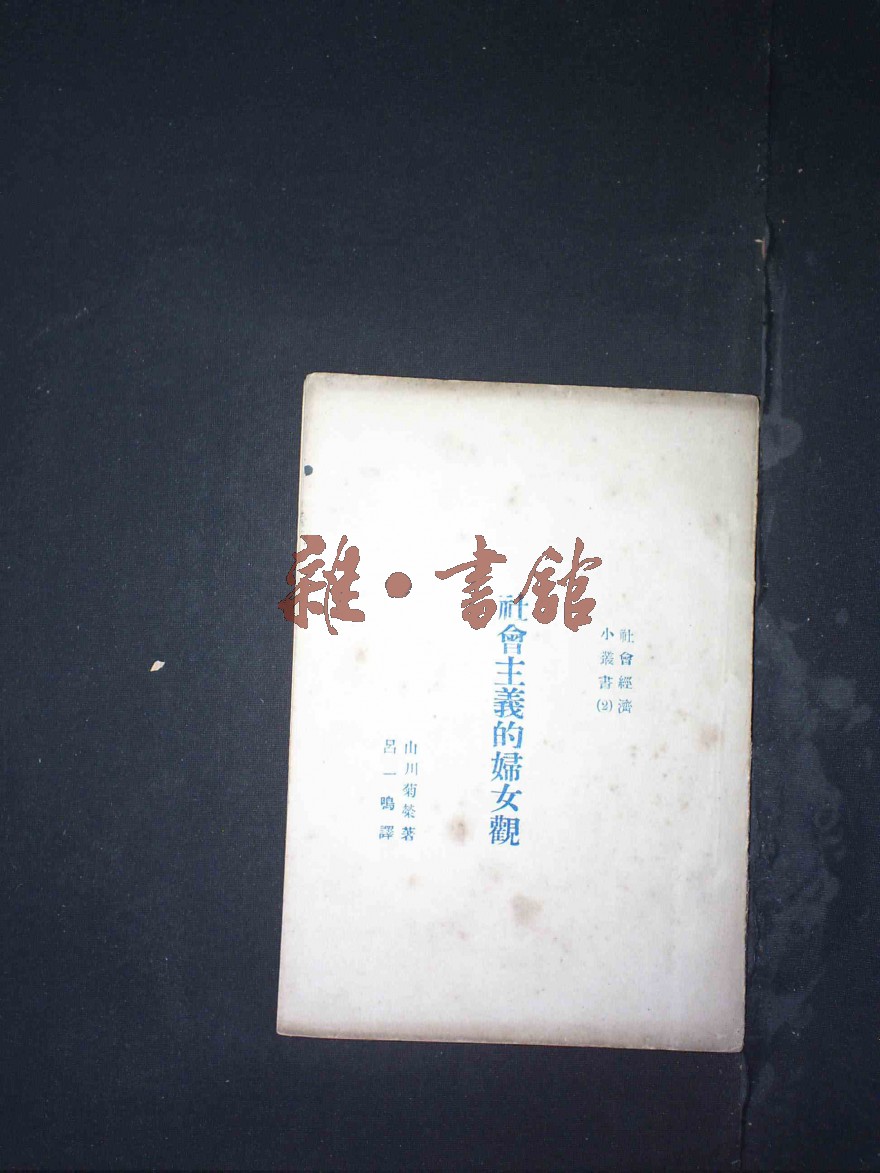 雜·書館
社會經濟
小叢書(2)
社會主義的婦女觀
山川菊榮著
呂一鳴譯